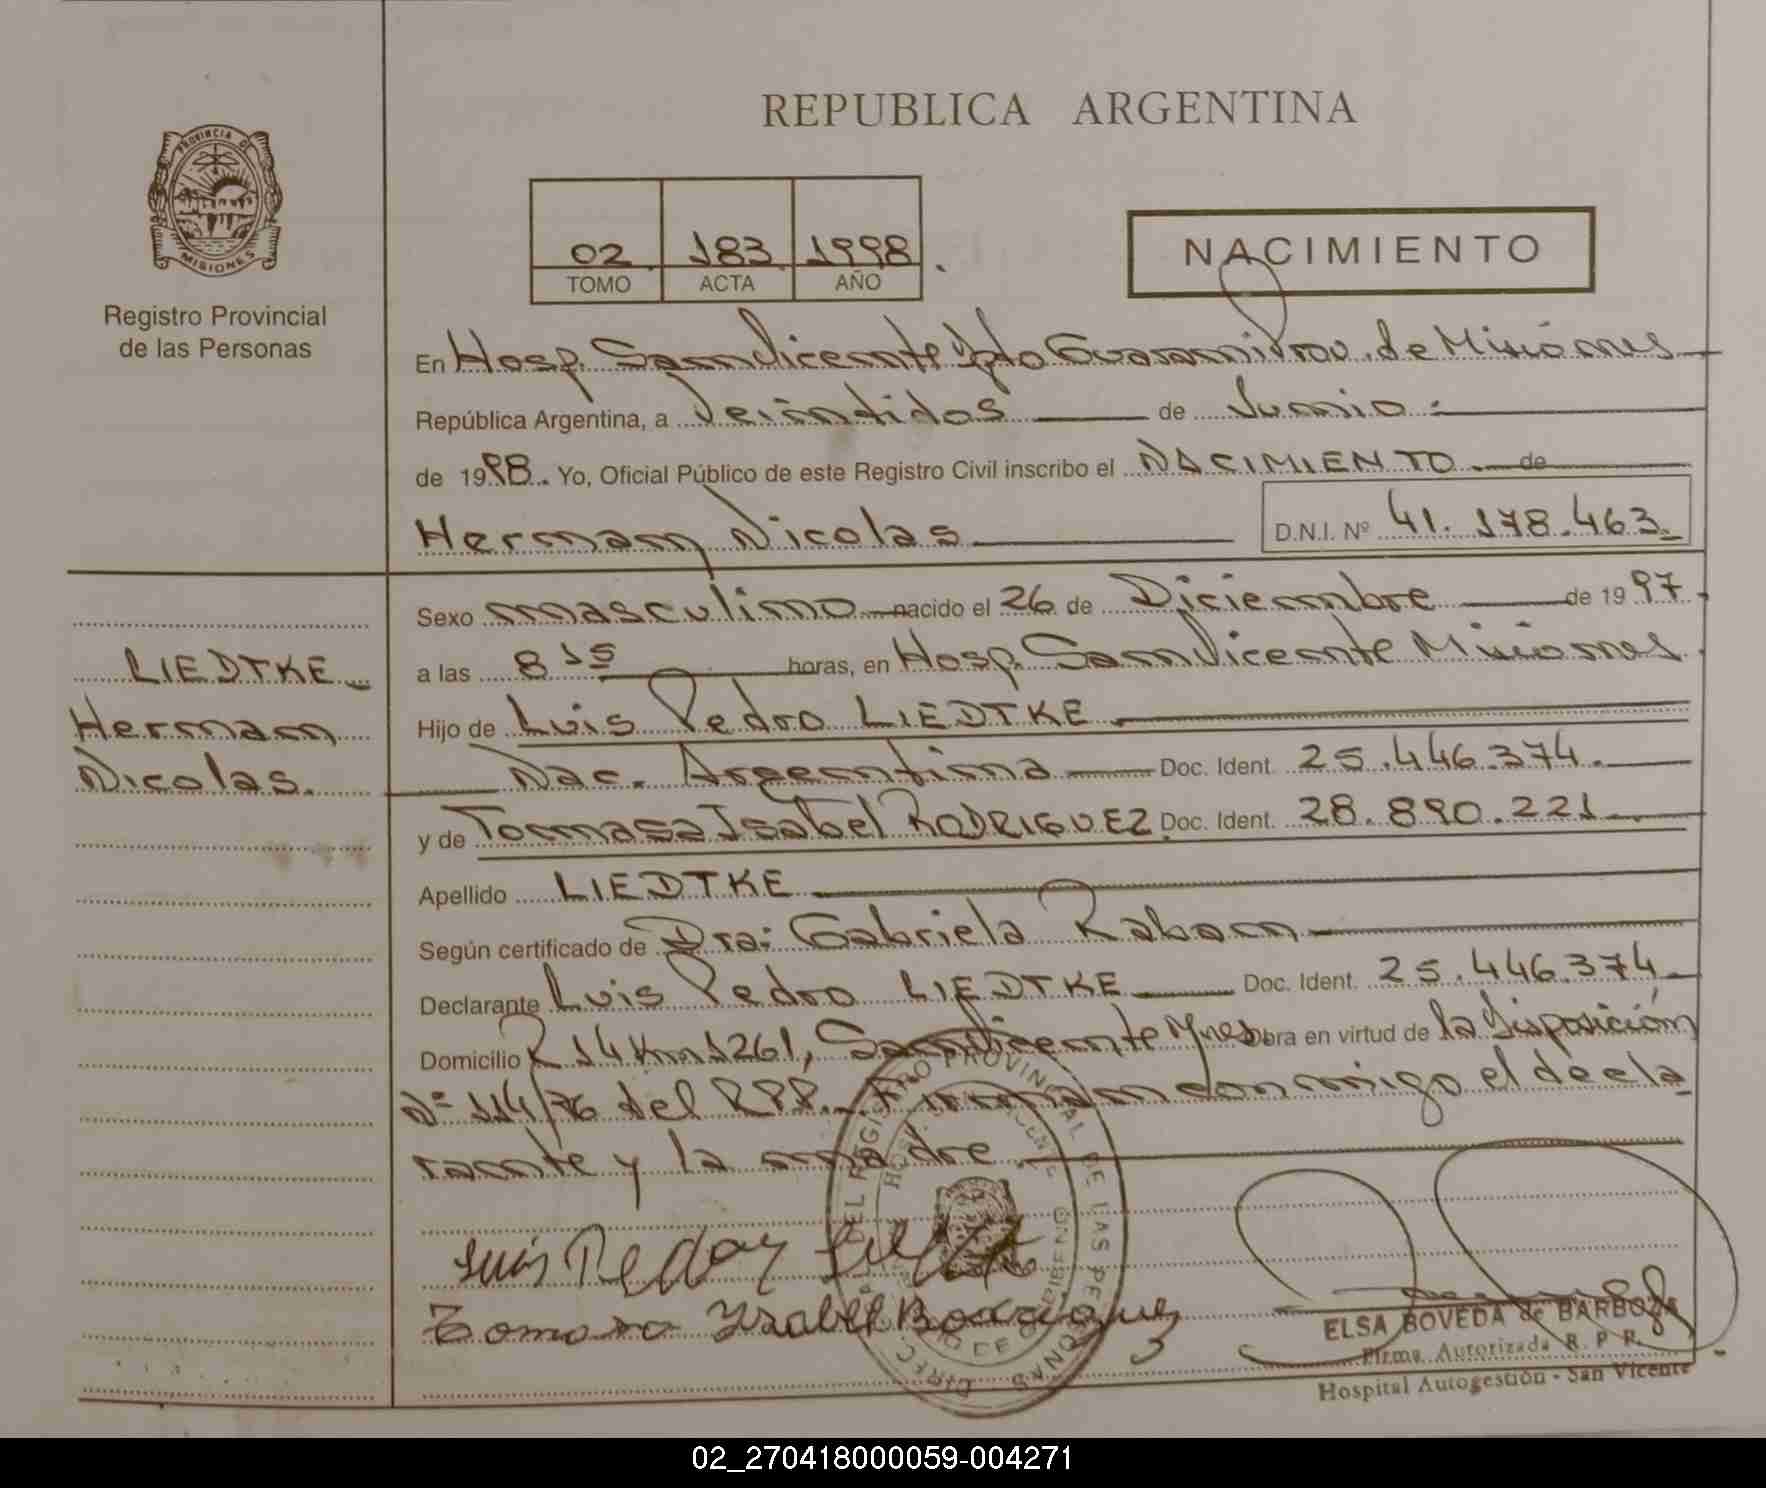 REPUBLICA ARGENTINA
PROVINCIA DE
MISIONES
Registro Provincial
de las Personas
02 183 1998
TOMO ACTA AÑO
NACIMIENTO
En Hosp. San Vicente Dpto Guaraní Prov. de Misiones
República Argentina, a Veintidos de Junio
de 1998. Yo, Oficial Público de este Registro Civil inscribo el NACIMIENTO de
Hernan Nicolas D.N.I. Nº 41.178.463.
Sexo masculino nacido el 26 de Diciembre de 1997
a las 8 15 horas, en Hosp. San Vicente Misiones
Hijo de Luis Pedro LIEDTKE
Nac. Argentina Doc. Ident. 25.446.374.
y de Tomasa Isabel RODRIGUEZ Doc. Ident. 28.890.221
Apellido LIEDTKE
Según certificado de Dra: Gabriela Raban
Declarante Luis Pedro LIEDTKE Doc. Ident. 25.446.374
Domicilio R 14 Km 1261, San Vicente Mnes obra en virtud de la disposición
Nº 114/76 del RPP. Firman conmigo el decla
rante y la madre
LIEDTKE
Hernan
Nicolas.
Luis Pedro
Tomasa Ysabel
ELSA BOVEDA de BARBOZA
Firma Autorizada R. P. P.
Hospital Autogestión - San Vicente
02_270418000059-004271